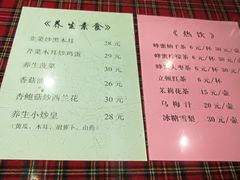 《养生素食》
韭菜炒黑木耳 28元
芹菜木耳炒鸡蛋 29元
养生菠菜 30元
香菇油 26元
香鲍菇炒西兰花 30元
养生小炒皇 28元
(黄瓜、木耳、胡萝卜、山药)
《热饮》
蜂蜜柚子茶 6元/杯 30元/
蜂蜜柠檬茶 6元/杯 30元/
蜂蜜人枣茶 6元/杯 30元/
立顿红茶 6元/杯
茉莉花茶 15元/壶
乌梅汁 20元/
冰糖雪梨 30元/